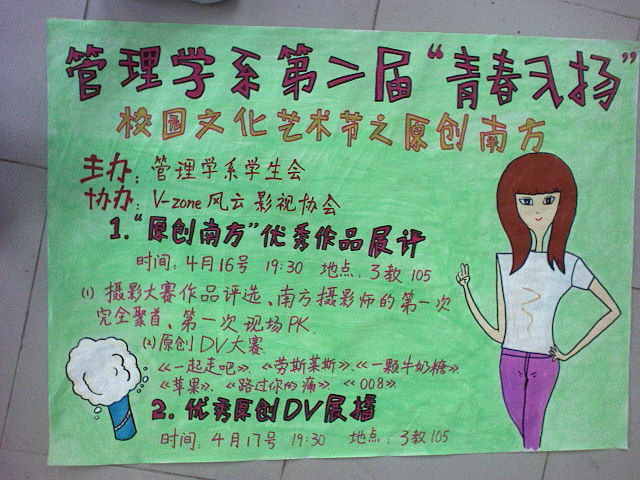 管理学系第二届“青春飞扬”
校园文化艺术节之原创南方
主办：管理学系学生会
协办：V-zone风云影视协会
1.“原创南方”优秀作品展评
时间：4月16号 19:30 地点：3教105
(1) 摄影大赛作品评选、南方摄影师的第一次
完全聚首、第一次现场PK.
(2)原创DV大赛
《一起走吧》.《劳斯莱斯》.《一颗牛奶糖》.
《苹果》、《路过你的痛》 《008》.
2.优秀原创DV展播
时间：4月17号 19:30 地点：3教105